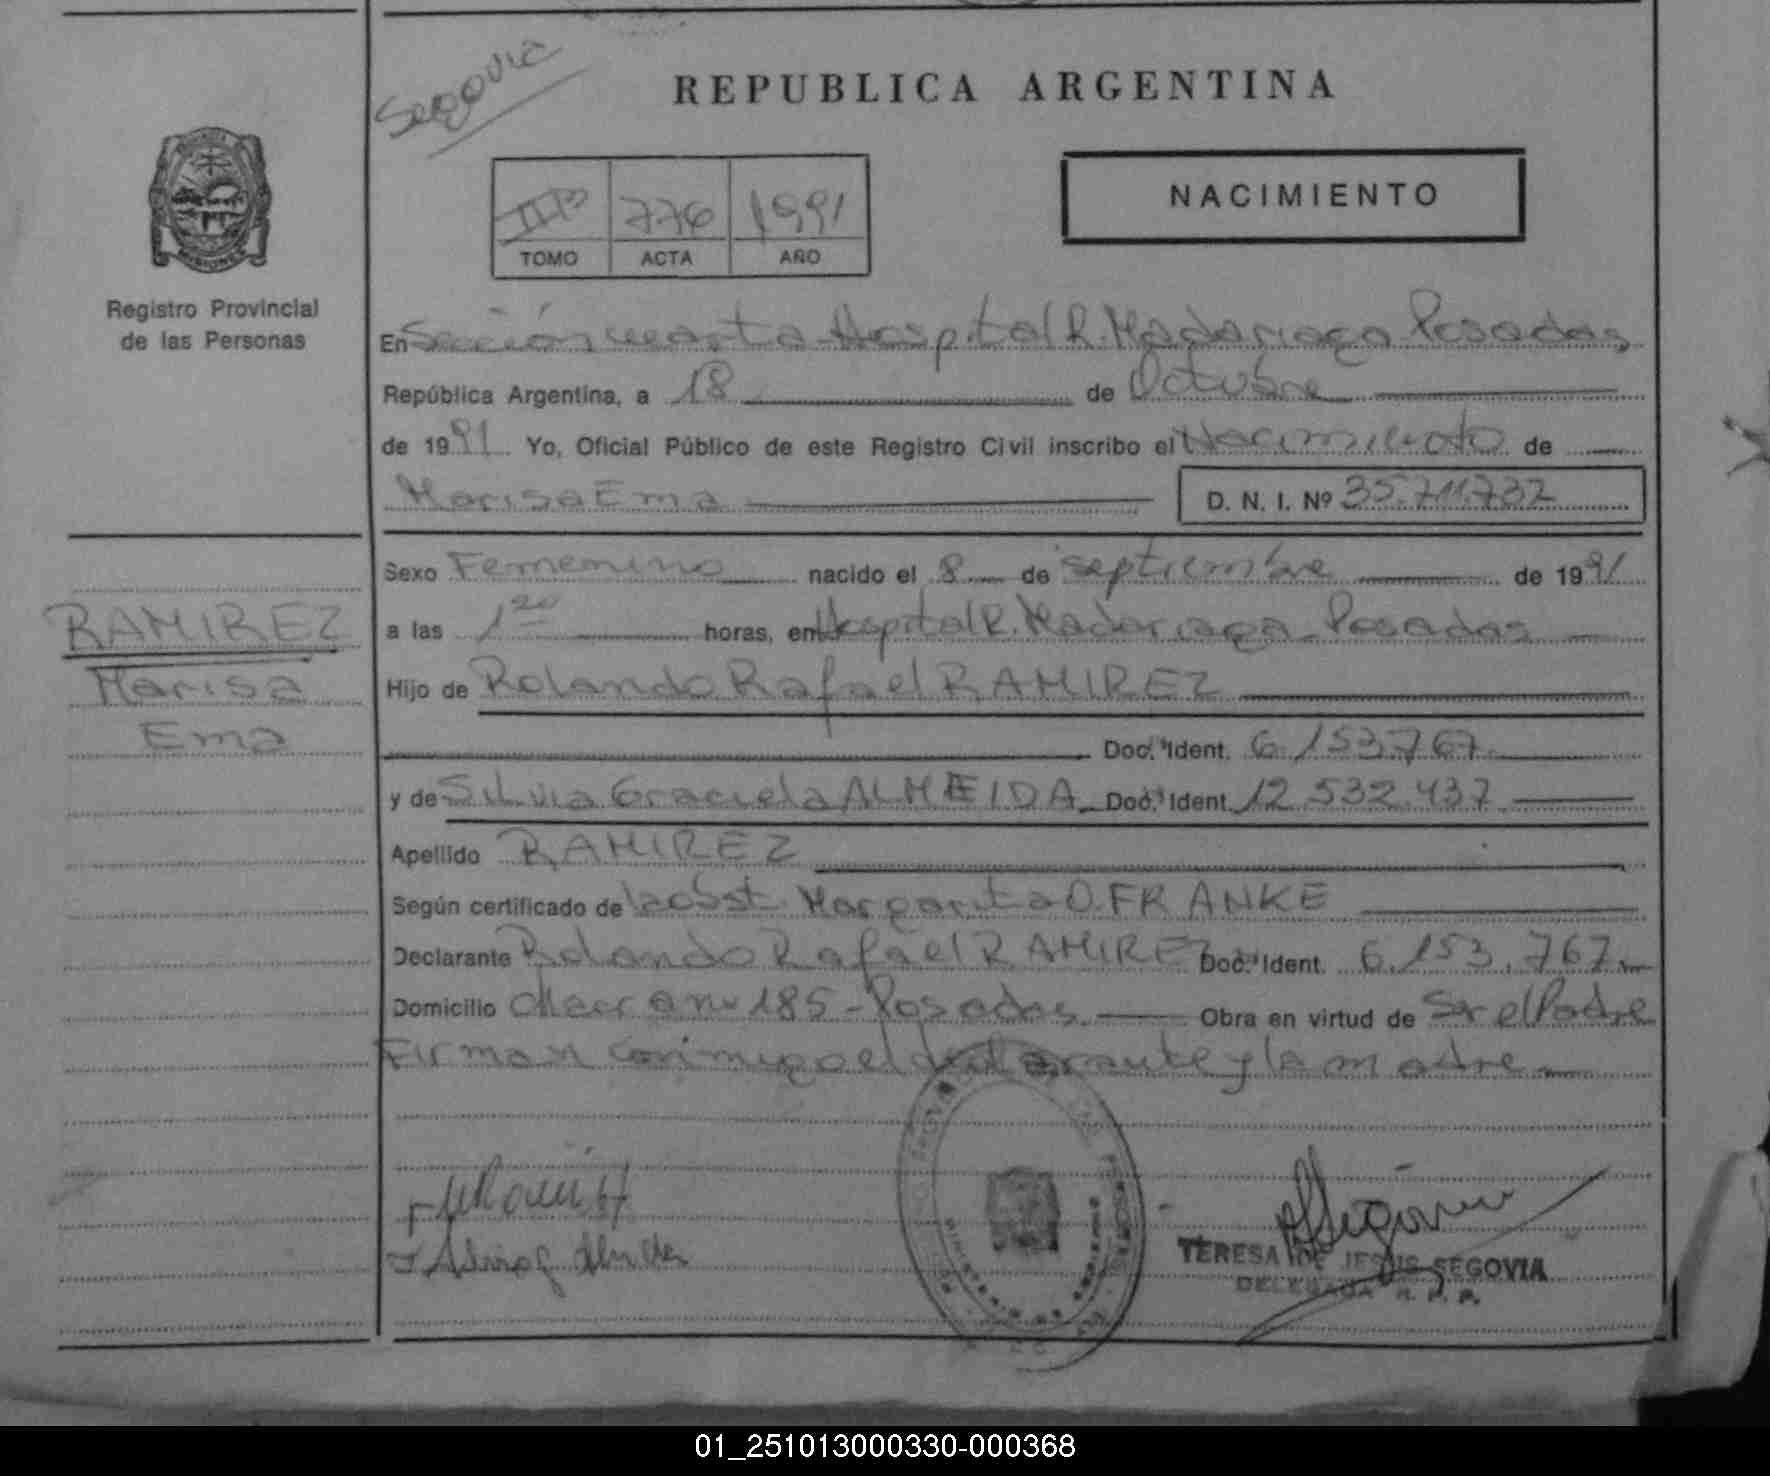 Segovia
REPUBLICA ARGENTINA
NACIMIENTO
IIIº 776 1991
TOMO ACTA AÑO
MISIONES
Registro Provincial
de las Personas
En Sección cuarta Hospital R. Madariaga Posadas,
República Argentina, a 18 de Octubre
de 1991 Yo, Oficial Público de este Registro Civil inscribo el Nacimiento de
Marisa Ema D. N. I. Nº 35.711.737
Sexo Femenino nacido el 8 de septiembre de 1991
a las 1 20 horas, en Hospital R. Madariaga Posadas
Hijo de Rolando Rafael RAMIREZ
Doc. Ident. 6.153.767
y de Silvia Graciela ALMEIDA Doc. Ident. 12.532.437
Apellido RAMIREZ
Según certificado de la obst. Margarita O. FRANKE
Declarante Rolando Rafael RAMIREZ Doc. Ident. 6.153.767
Domicilio 185 - Posadas Obra en virtud de Ser el Padre
Firman conmigo el declarante y la madre
RAMIREZ
Marisa
Ema
TERESA DE JESUS SEGOVIA
DELEGADA R. P. P.
01_251013000330-000368